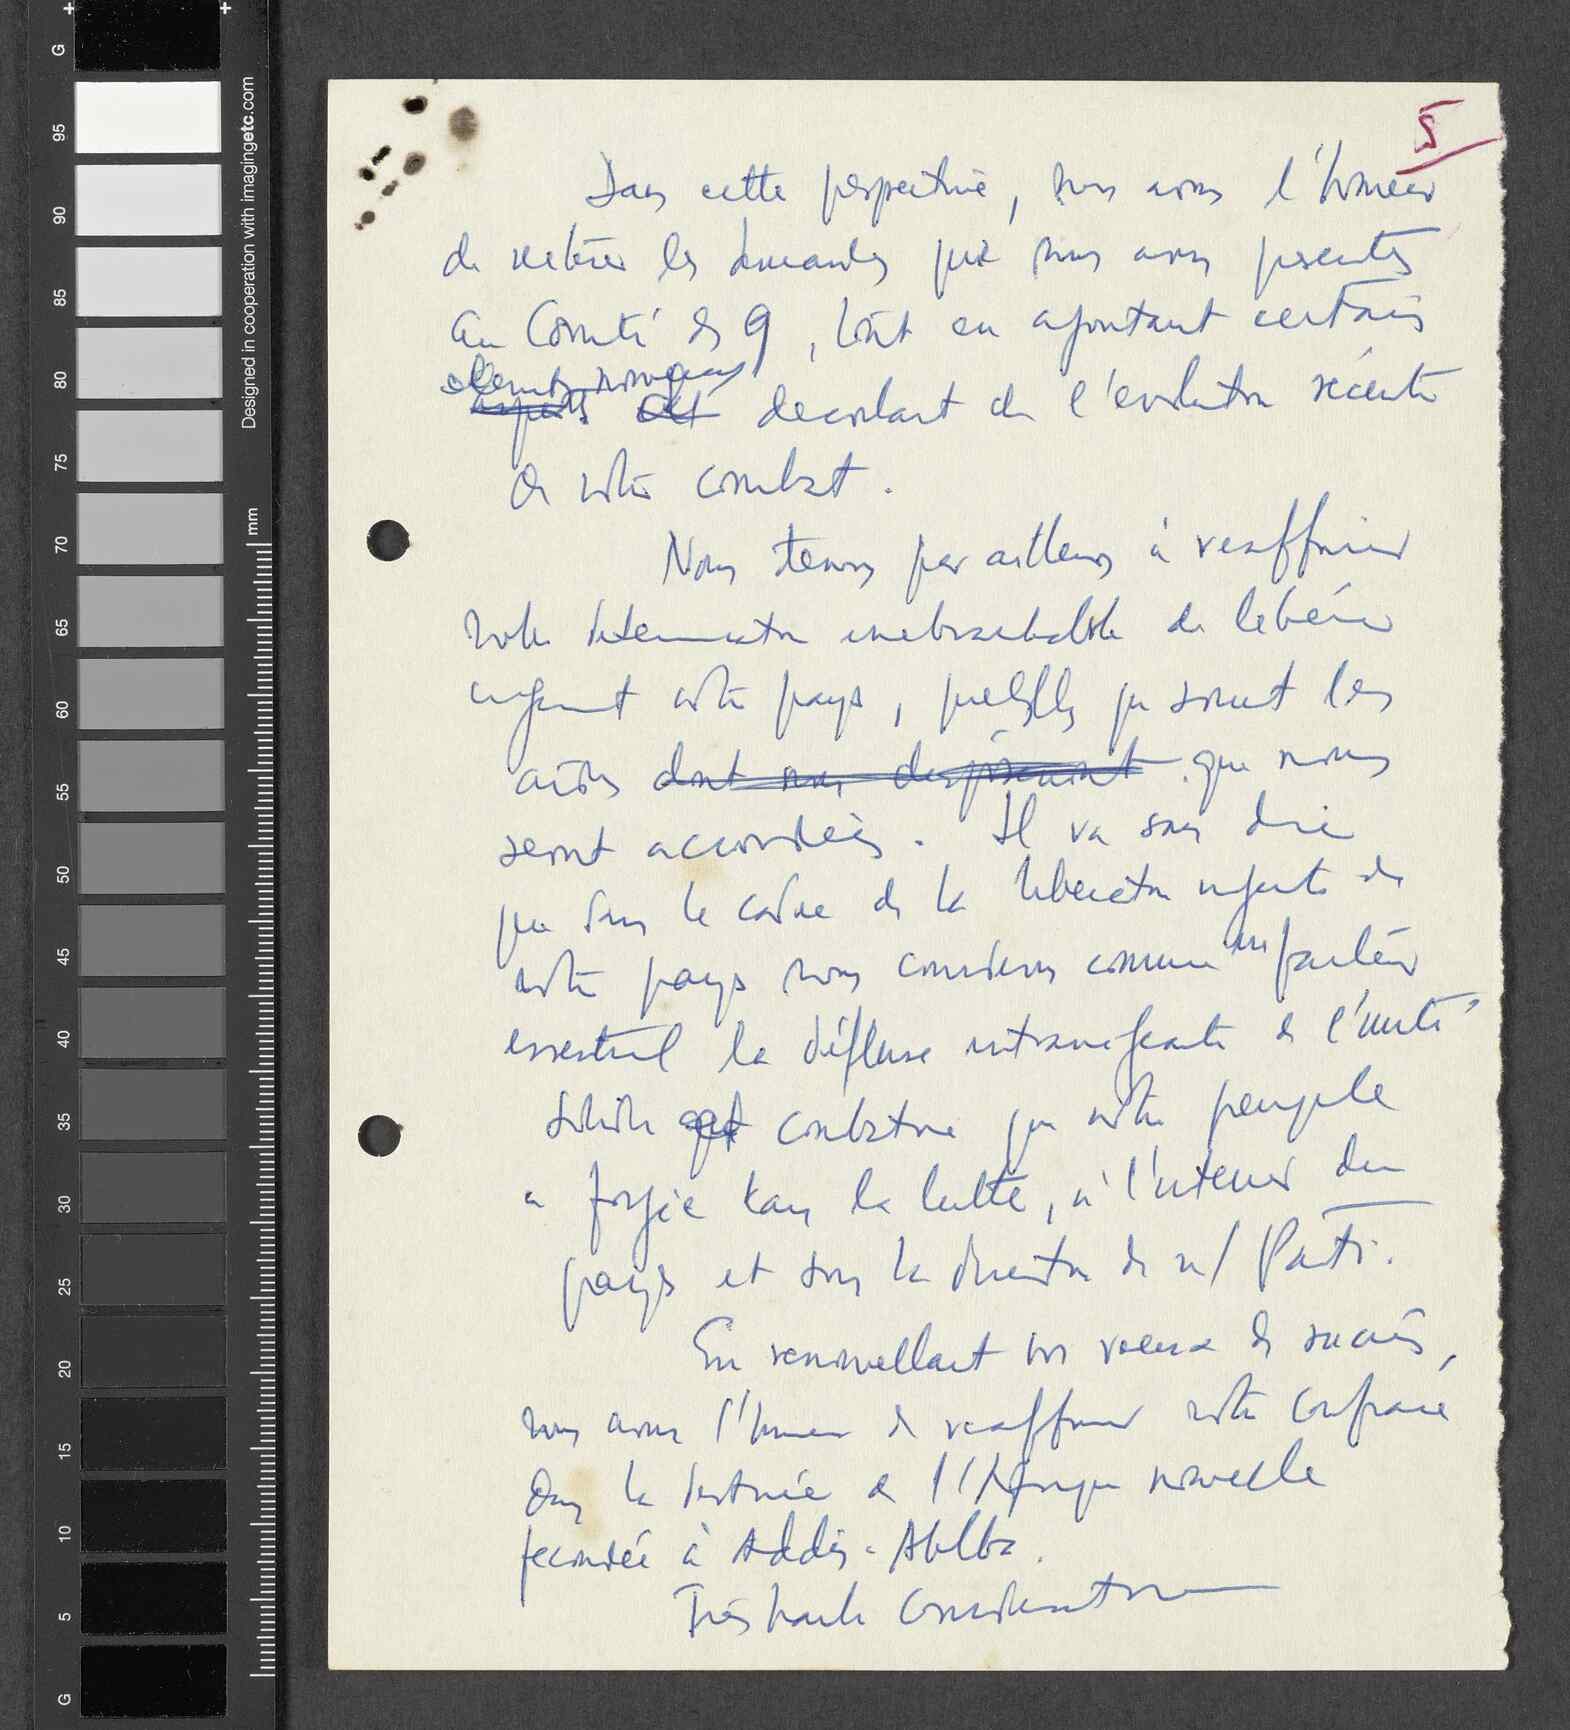 5
Dans cette perspective, nous avons l'honneur
de réitérer les demandes que nous avons présentées
au Comité des 9, tout en ajoutant certains
éléments nouveaux
aspects decoulant de l'evolution récente
de notre combat.
Nous tenons par ailleurs à reaffirmer
notre détermination inebranlable de libérer
urgemment notre pays, quelles que soient les
aides dont nous disposerons que nous
seront accordées. Il va sans dire
que dans le cadre de la liberation urgente de
notre pays nous considerons comme un facteur
essentiel la défense intransigeante de l'unité
solide et combative que notre peuple
a forgée dans la lutte, à l'interieur du
pays et sous la direction de n/ Parti.
En renouvellant nos voeux de succès,
nous avons l'honneur de reaffirmer notre confiance
dans la destinée de l'Afrique nouvelle
fecondée à Addis-Abbeba.
Très haute consideration
G
95
90
85
80
75
70
65
60
55
50
45
40
35
30
25
20
15
10
5
G
mm
Designed in cooperation with imagingetc.com